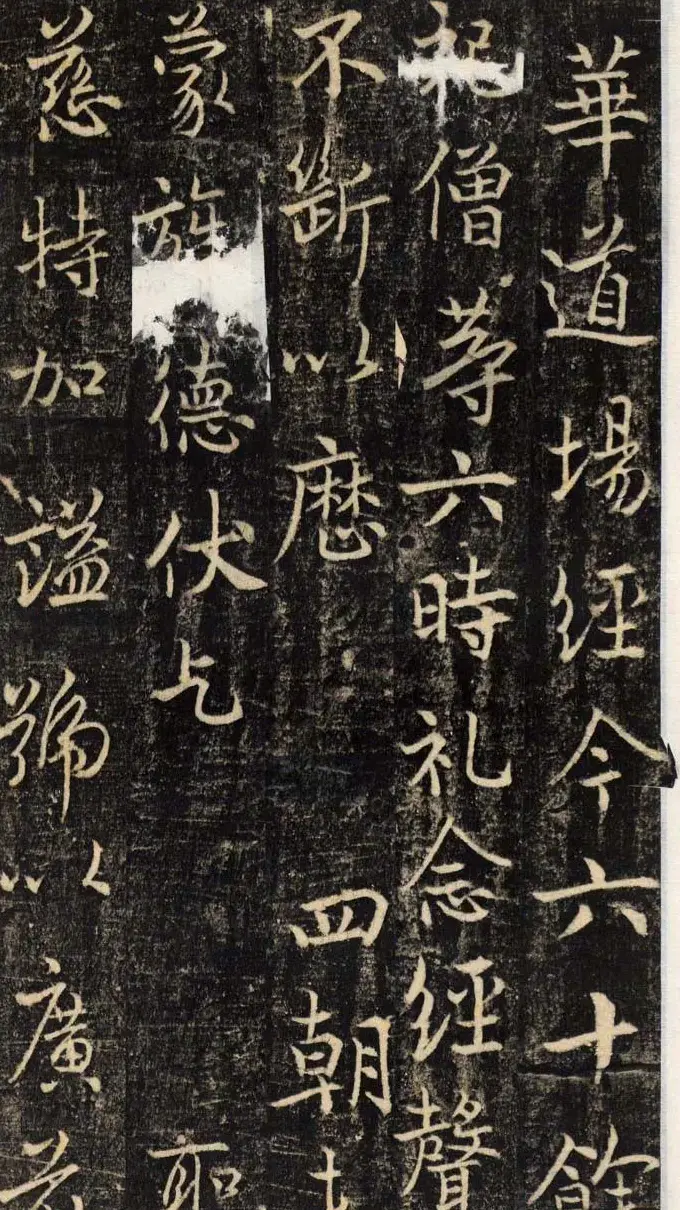 華道場經今六十餘
祀僧等六時礼念經聲
不斷以歷四朝
蒙旌德伏乞聖
慈特加謚號以廣